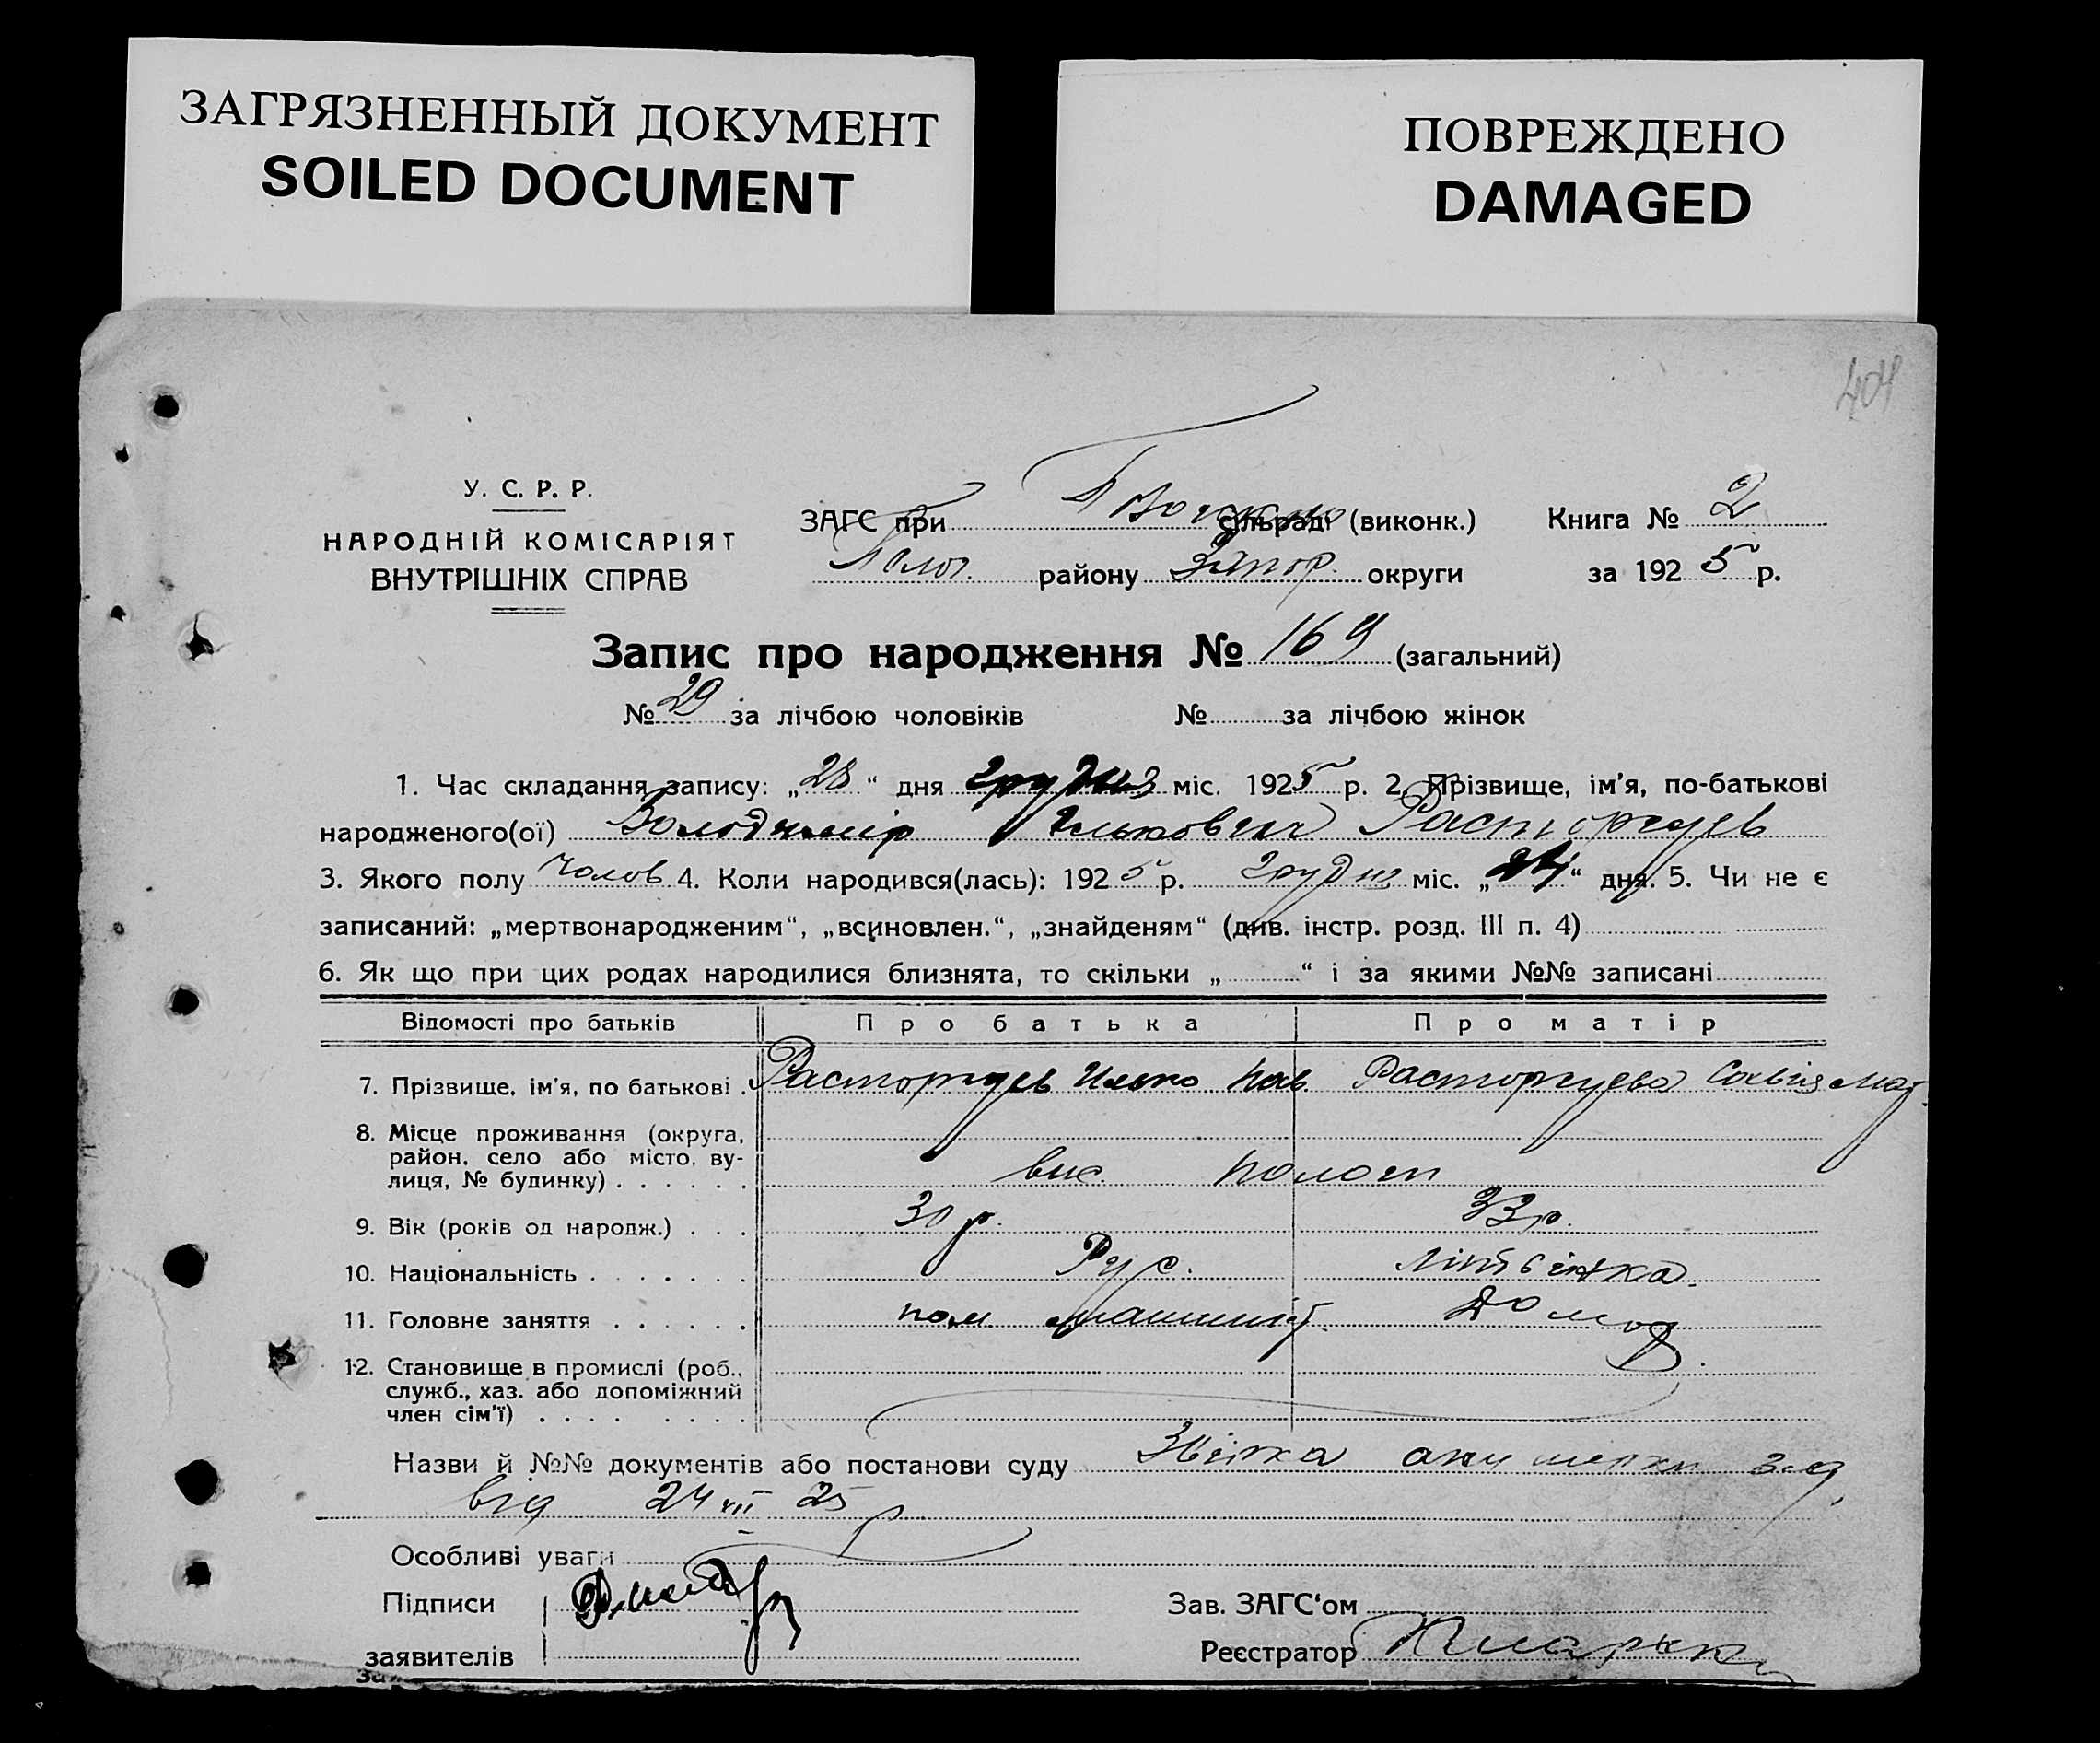 ЗАГРЯЗНЕННЫЙ ДОКУМЕНТ
SOILED DOCUMENT
ПОВРЕЖДЕНО
DAMAGED
404
У. С. Р. Р.
НАРОДНІЙ КОМІСАРІЯТ
ВНУТРІШНІХ СПРАВ
ЗАГС при сільраді (виконк.)
Полог. району Запор. округи
Книга № 2
за 1925 р.
Запис про народження № 169 (загальний)
№ 29 за лічбою чоловіків № за лічбою жінок
1. Час складання запису: „28“ дня грудня міс. 1925 р. 2. Прізвище, ім’я, по-батькові
народженого(ої) Володимір Ількович Расторгуев
3. Якого полу чолов 4. Коли народився(лась): 1925 р. грудня міс. „24“ дня. 5. Чи не є
записаний: „мертвонародженим“, „всиновлен.“, „знайденям“ (див. інстр. розд. III п. 4)
6. Як що при цих родах народилися близнята, то скільки „ “ і за якими №№ записані
Відомості про батьків Про батька Про матір
7. Прізвище, ім’я, по батькові . Расторгуев Илько Пав. Расторгуева Сохвія Мат.
8. Місце проживання (округа,
район, село або місто, ву-
лиця, № будинку) . . . . . . вис. Пологи
9. Вік (років од народж.) . . . 30 р. 33 р.
10. Національність . . . . . . . Рус. Літвінка.
11. Головне заняття . . . . . . пом машиніст. Домог.
12. Становище в промислі (роб.,
служб., хаз. або допоміжний
член сім’ї) . . . . . . . .
Назви й №№ документів або постанови суду Звістка акушерки
від 24 XII 25 р
Особливі уваги
Підписи
заявителів
Зав. ЗАГС‘ом
Реєстратор